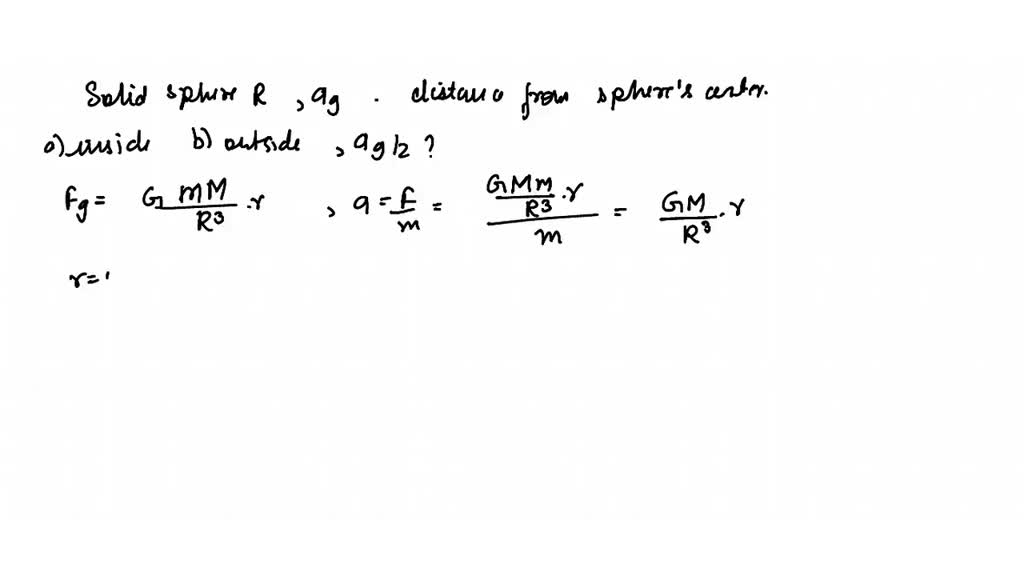 Solid sphere R , ag . distance from sphere's center.
a) inside b) outside , ag/2 ?
Fg = G mM / R³ . r , a = F/m = GMm/R³ . r / m = GM/R³ . r
r = '